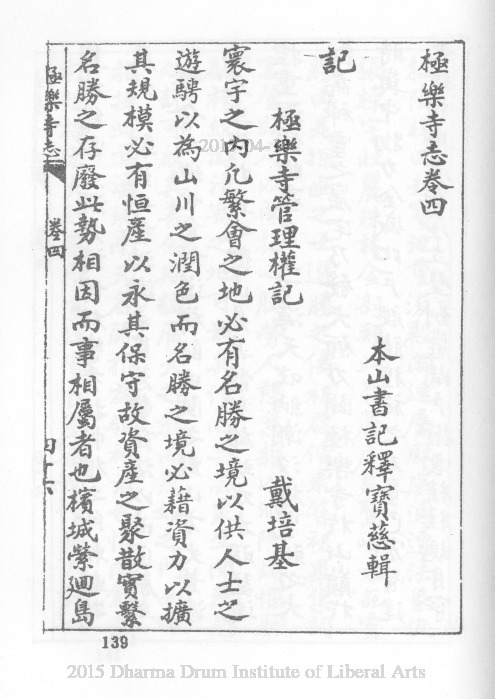 極樂寺志卷四
本山書記釋寶慈輯
記
極樂寺管理權記
戴培基
寰宇之內凡繁會之地必有名勝之境以供人士之
遊騁以為山川之潤色而名勝之境必藉資力以擴
其規模必有恒產以永其保守故資產之聚散實繫
名勝之存廢此勢相因而事相屬者也檳城縈廻島
極樂寺志
卷四
四十六
139
2015 Dharma Drum Institute of Liberal Arts